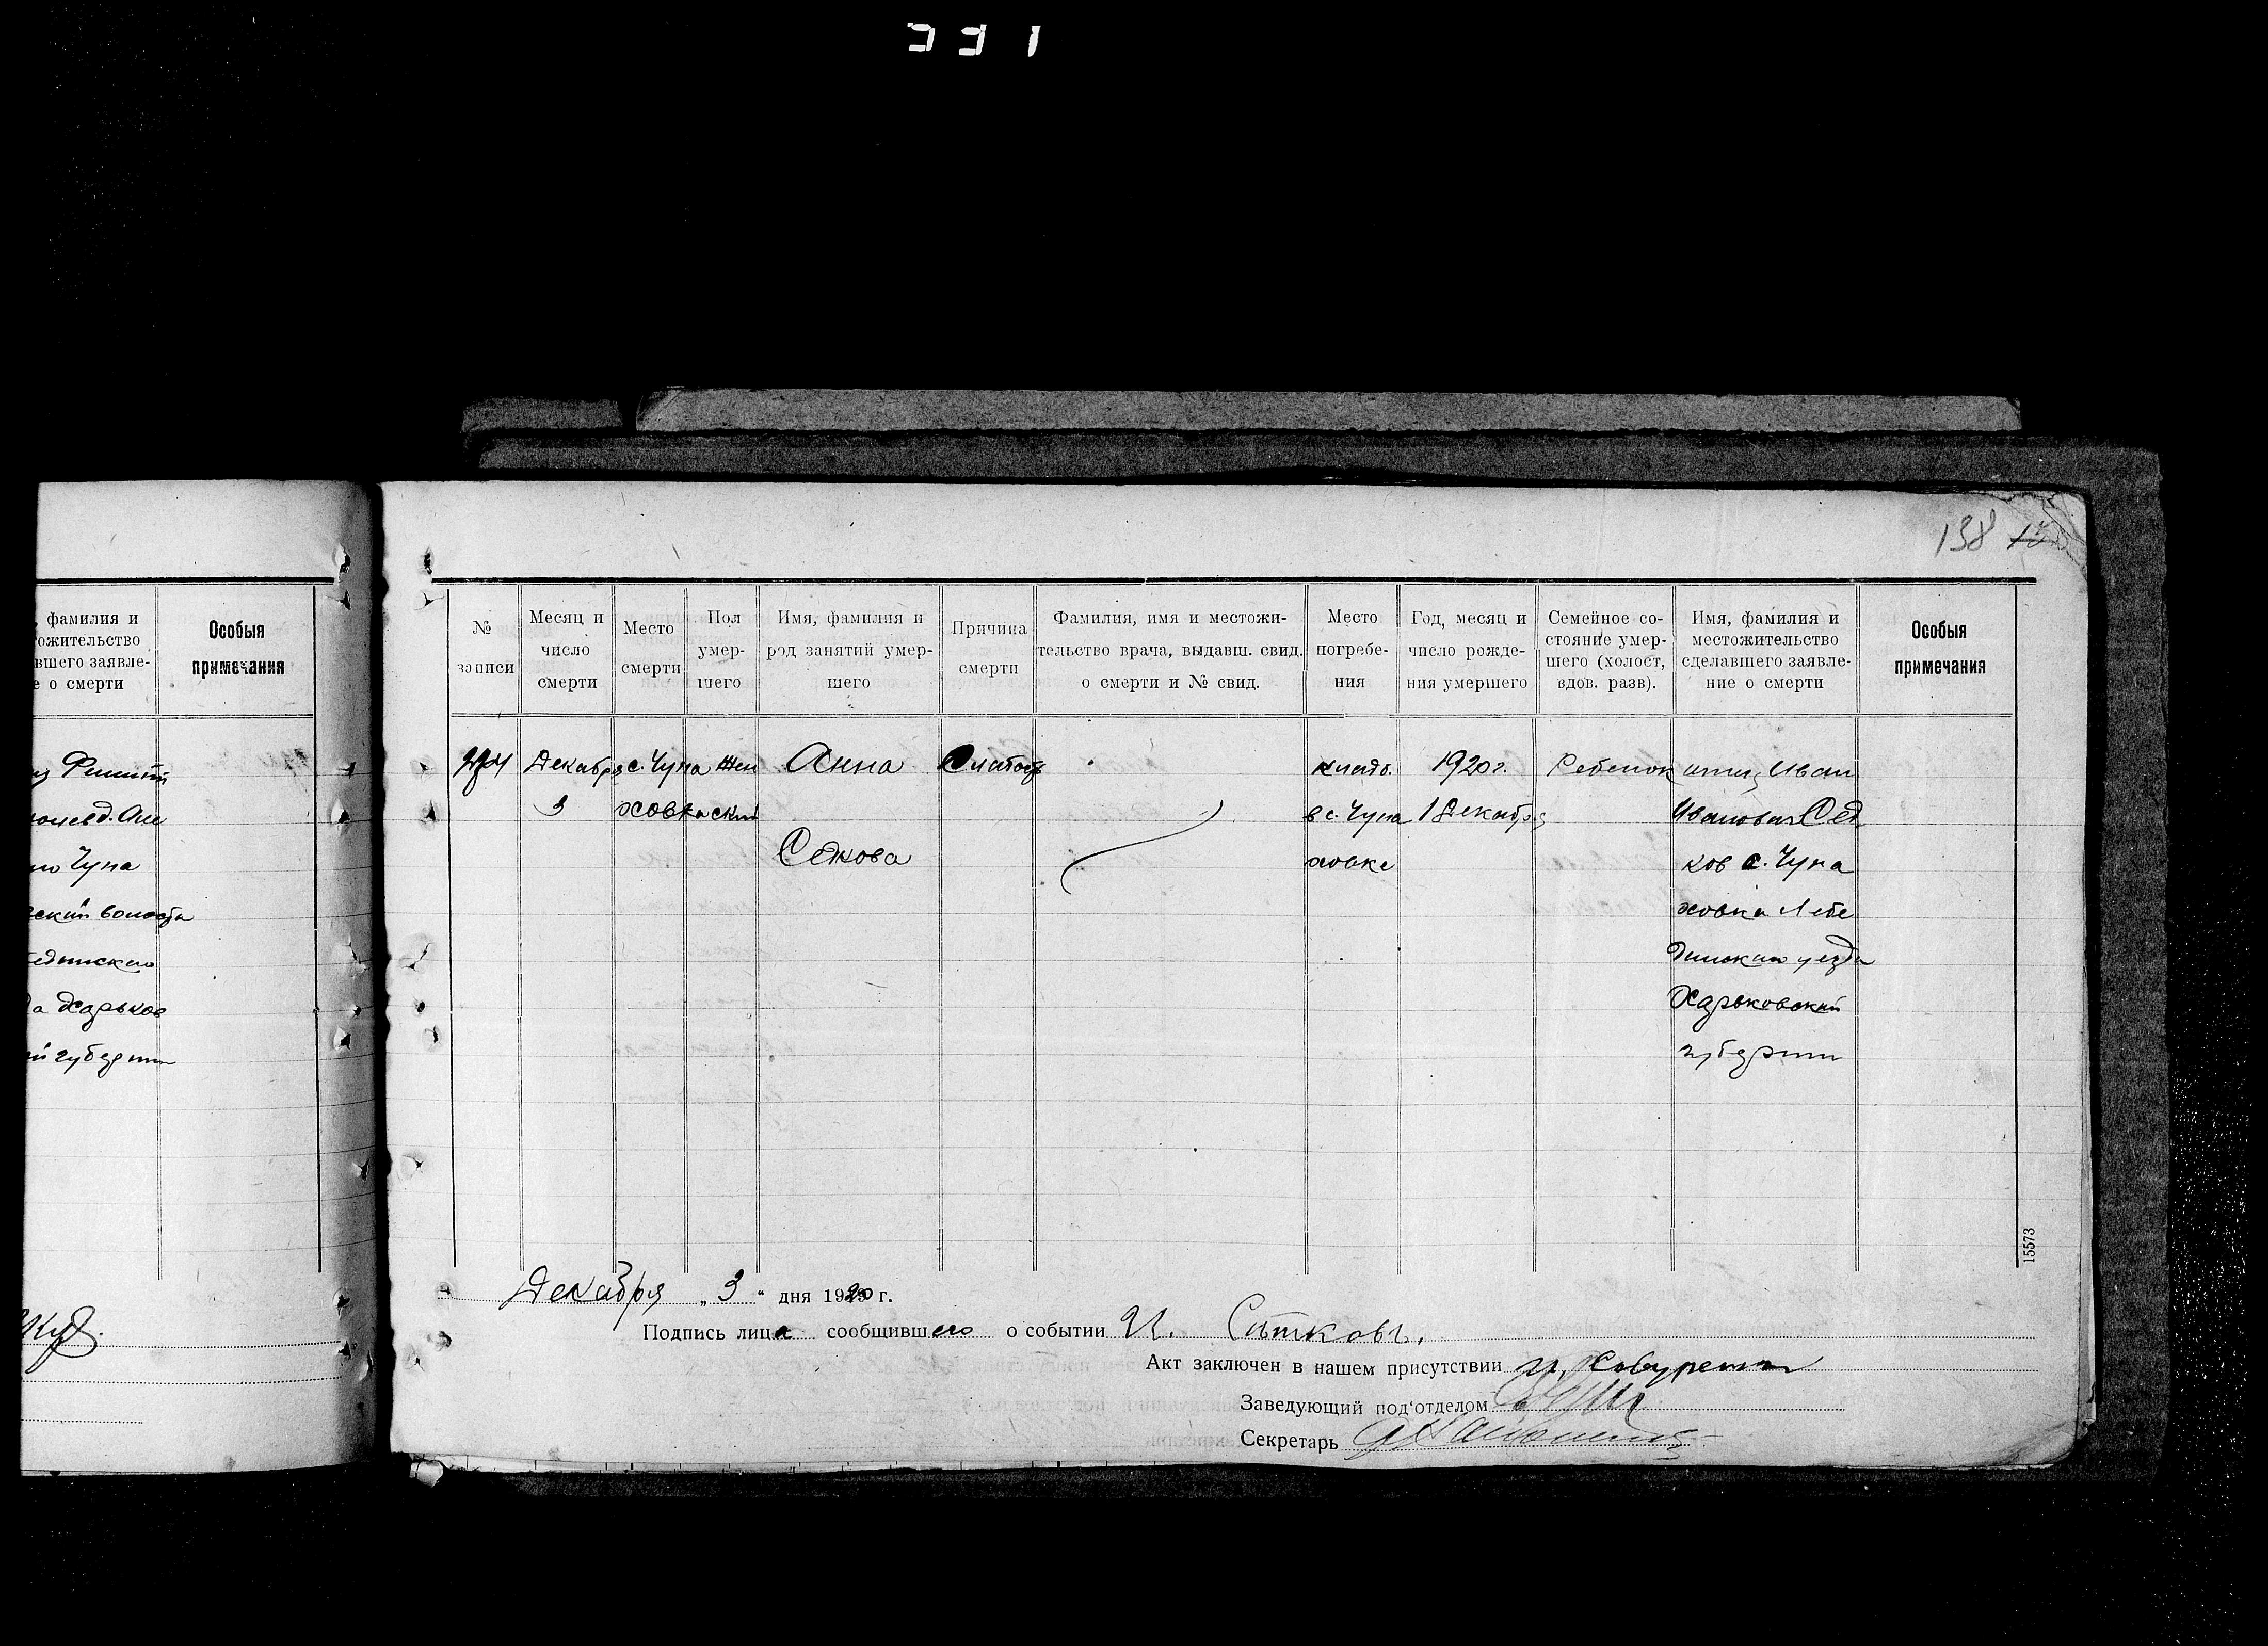 331
138
фамилия и
ожительство
вшего заявле-
е о смерти
Особыя
примечания
Чупа
Харьков
губернии
№
записи
Месяц и
число
смерти
Место
смерти
Пол
умер-
шего
Имя, фамилия и
род занятий умер-
шего
Причина
смерти
Фамилия, имя и местожи-
тельство врача, выдавш. свид.
о смерти и № свид.
Место
погребе-
ния
Год, месяц и
число рожде-
ния умершего
Семейное со-
стояние умер-
шего (холост,
вдов. разв).
Имя, фамилия и
местожительство
сделавшего заявле-
ние о смерти
Особыя
примечания
Декабря
3
с. Чупа
ховка
Жен
ский
Анна
Седкова
Слабость
кладб.
в с. Чупа
ховке
1920 г.
1 Декабря
Ребенок
отец Иван
Иванович Сед
ков с. Чупа
ховка Лебе
динскаго уезда
Харьковской
губернии
15573
Декабря „3“ дня 1920 г.
Подпись лица сообщившего о событии И. Ситковъ.
Акт заключен в нашем присутствии
Заведующий под'отделом
Секретарь